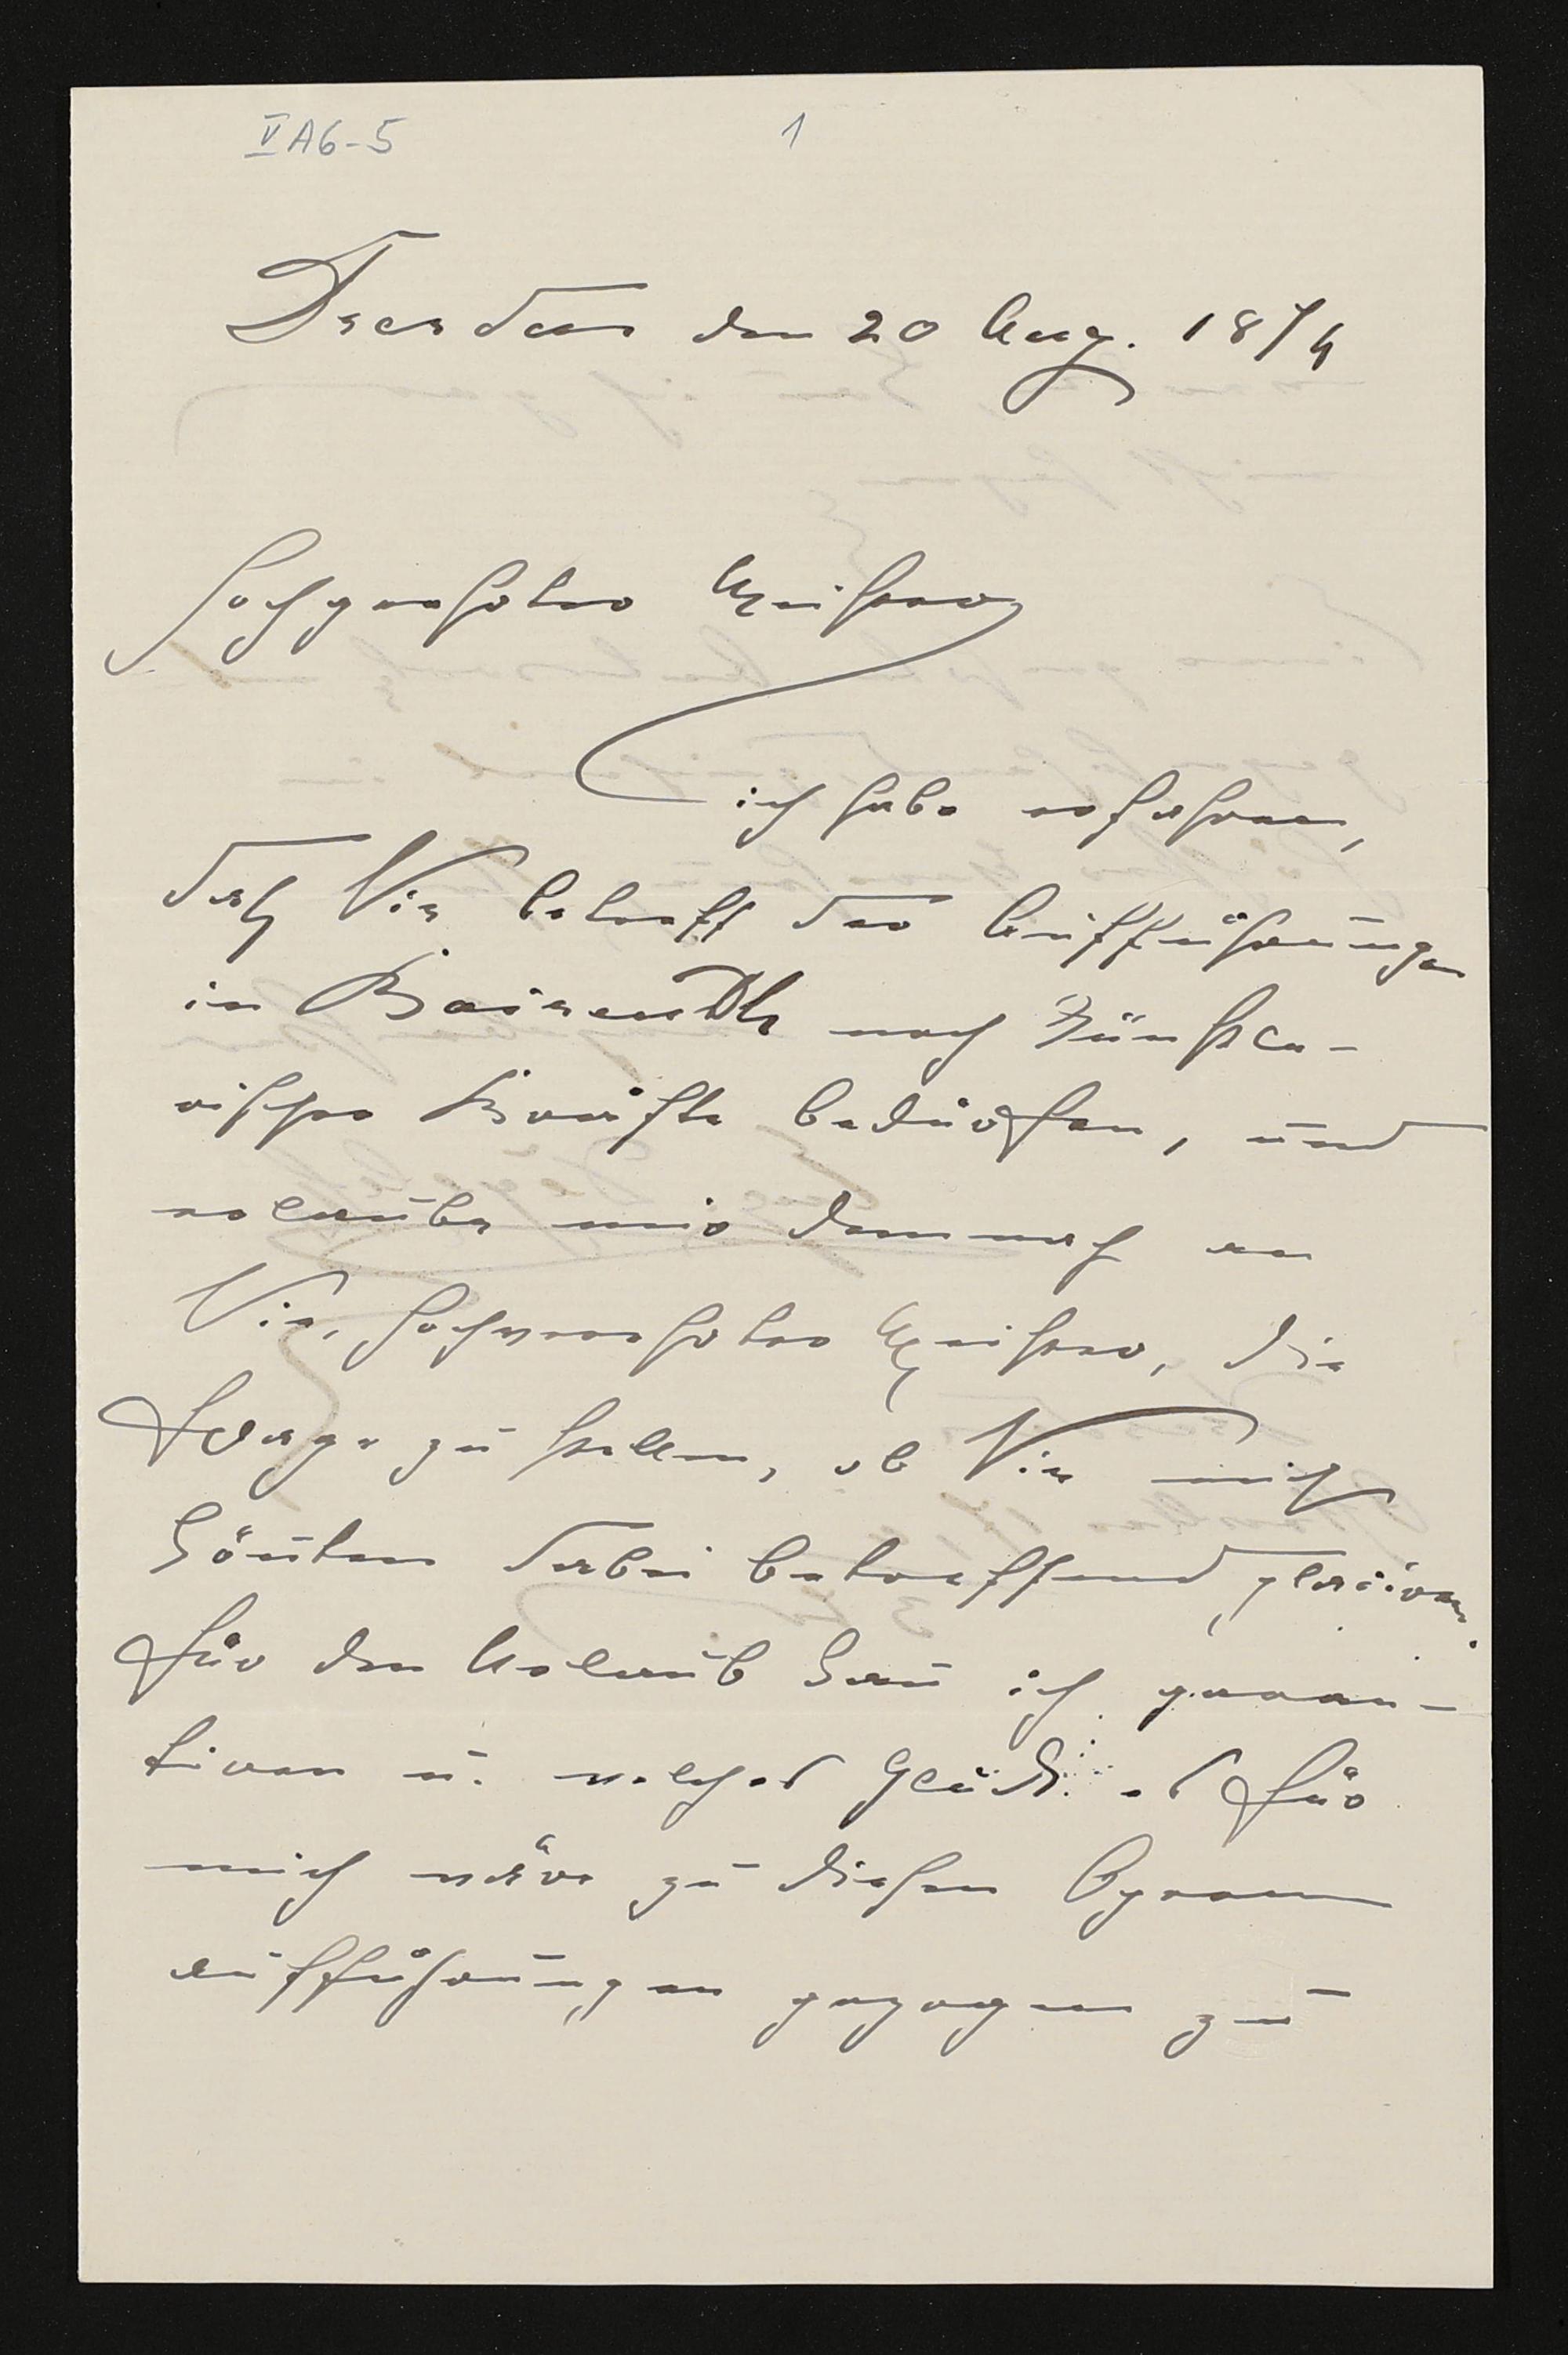 V A6-5
1
Dresden den 20 Aug. 1874
Hochgeehrter Meister
ich habe erfahren,
daß Sie betreff der Aufführungen
in Baireuth noch künstle-
rischer Kräfte bedürfen, und
erlaube mir demnach an
Sie, hochverehrter Meister, die
Frage zu stellen, ob Sie mich
könnten dabei betreffend placiren.
für den Urlaub kann ich garan-
tiren u. welches Glück es für
mich wäre zu diesen Opern
aufführungen gezogen zu